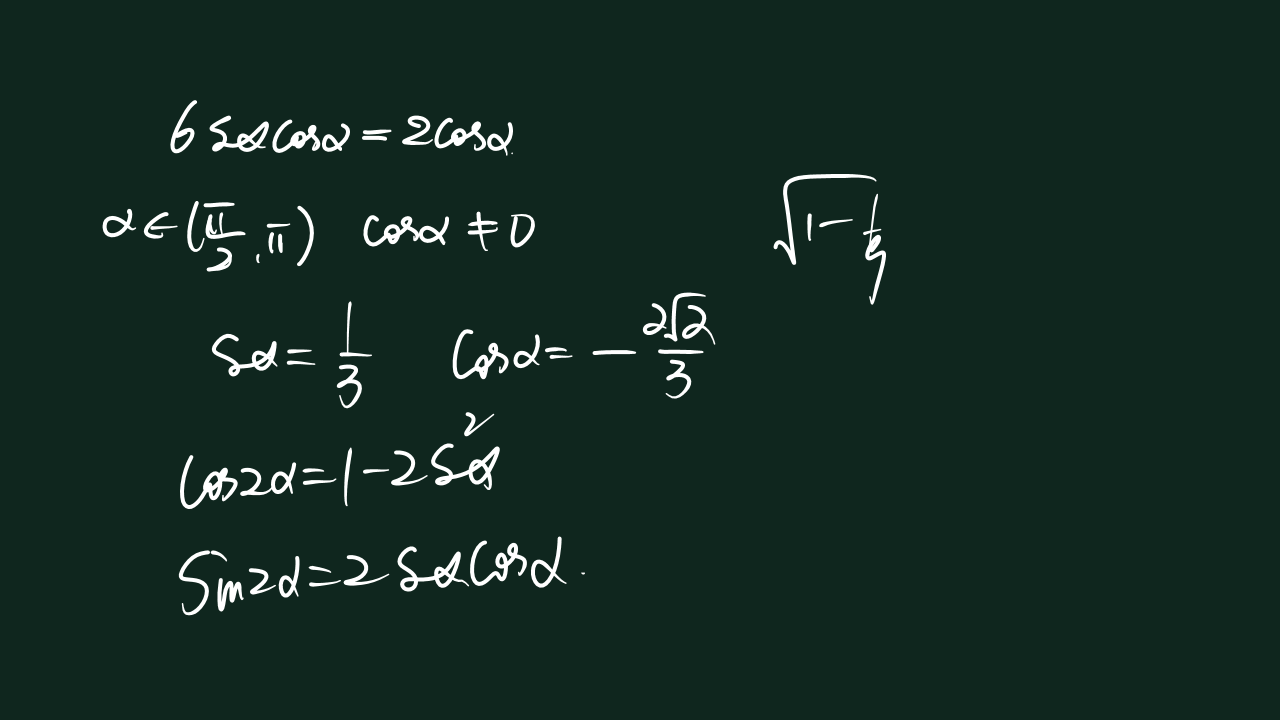 6 Sα cosα = 2cosα
α ∈ (π/2, π) cosα ≠ 0
√(1 - 1/9)
Sα = 1/3 cosα = - 2√2/3
Cos2α = 1 - 2Sα²
Sin2α = 2 Sα Cosα.